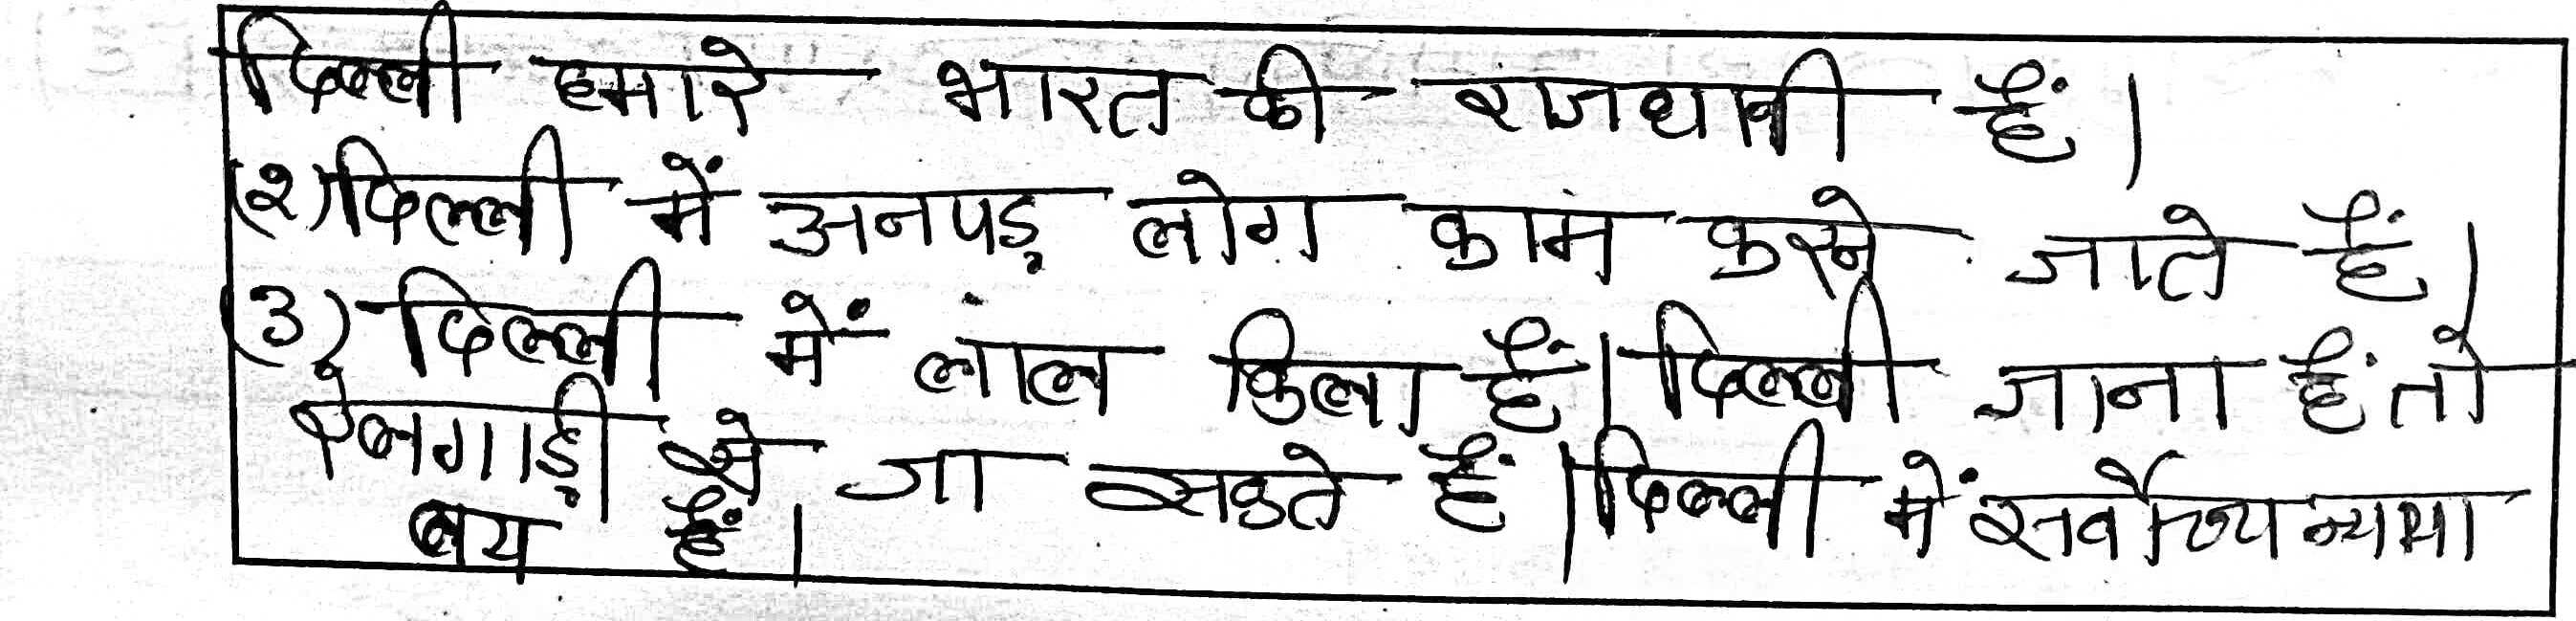 दिल्ली हमारे भारत की राजधानी हैं।
(२) दिल्ली में अनपड़ लोग काम करने जाते हैं।
(3) दिल्ली में लाल किला हैं। दिल्ली जाना हैं तो
रेलगाड़ी से जा सकते हैं। दिल्ली में सर्वोच्य न्याया
लय हैं।